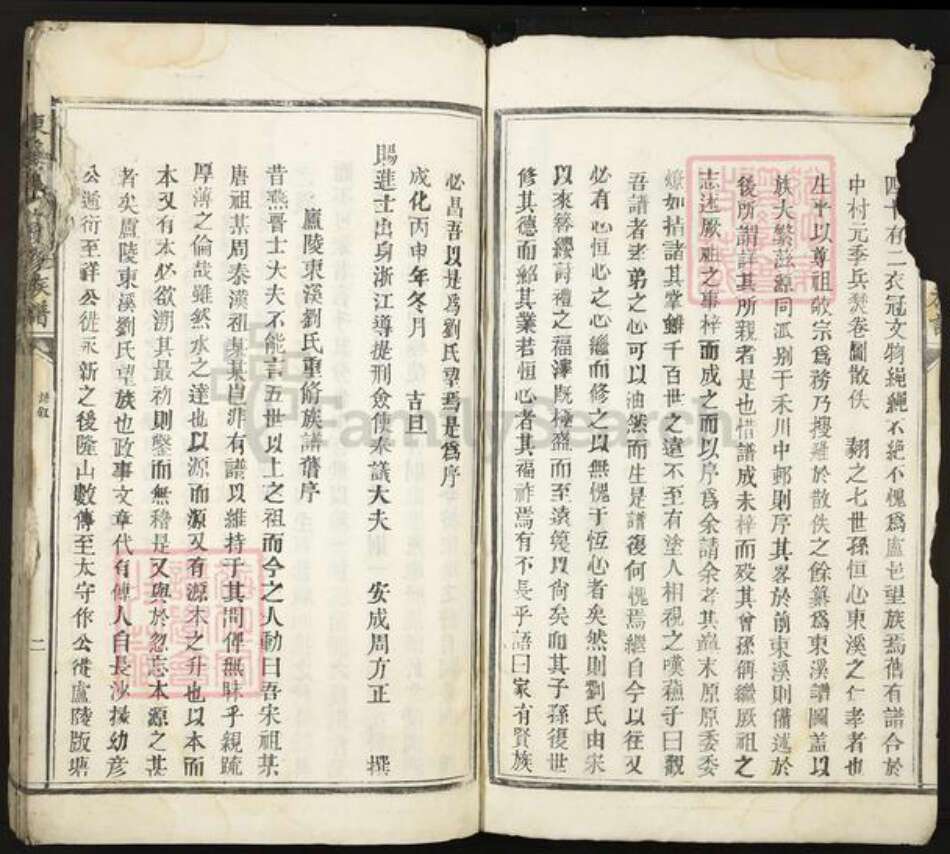 四十有二衣冠文物繩繩不絕不愧爲盧邑望族焉舊有譜合於
中村元季兵燹卷圖散佚 翱之七世孫恒心東溪之仁孝者也
生平以尊祖敬宗爲務乃搜羅於散佚之餘纂爲東溪譜圖蓋以
族大繁蘇源同派别于禾川中邨則序其畧於前東溪則備述於
後所謂詳其所親者是也惜譜成未梓而殁其曾孫偁繼厥祖之
志述厥祖之事梓而成之而以序爲余請余考其巔末原原委委
燎如指諸其掌雖千百世之遠不至有塗人相視之嘆蘇子曰觀
吾譜者孝弟之心可以油然而生是譜復何愧焉繼自今以往又
必有心恒心之心繼而修之以無愧于恆心者矣然則劉氏由宋
以來簪纓詩禮之福澤既極盛而至遠筧以尚矣而其子孫復世
修其德而紹其業若恒心者其福祚焉有不長乎語曰家有賢族
必昌吾以是爲劉氏望焉是爲序
成化丙申年冬月 吉旦
賜進士出身浙江導提刑僉使奉議大夫 安成周方正 撰
盧陵東溪劉氏重脩族譜舊序
昔燕晉士大夫不能言五世以上之祖而今之人動曰吾宋祖某
唐祖某周秦漢祖某某豈非有譜以維持于其間俾無昧乎親疏
厚薄之倫哉雖然水之達也以源而源又有源木之升也以本而
本又有本必欲溯其最初則鑿而無稽是又與於忽忘本源之甚
者矣盧陵東溪劉氏望族也政事文章代有傳人自長沙掾幼彦
公遁衍至祥公徙永新之後隆山數傳至太守作公徙盧陵版塘
譜叙
二